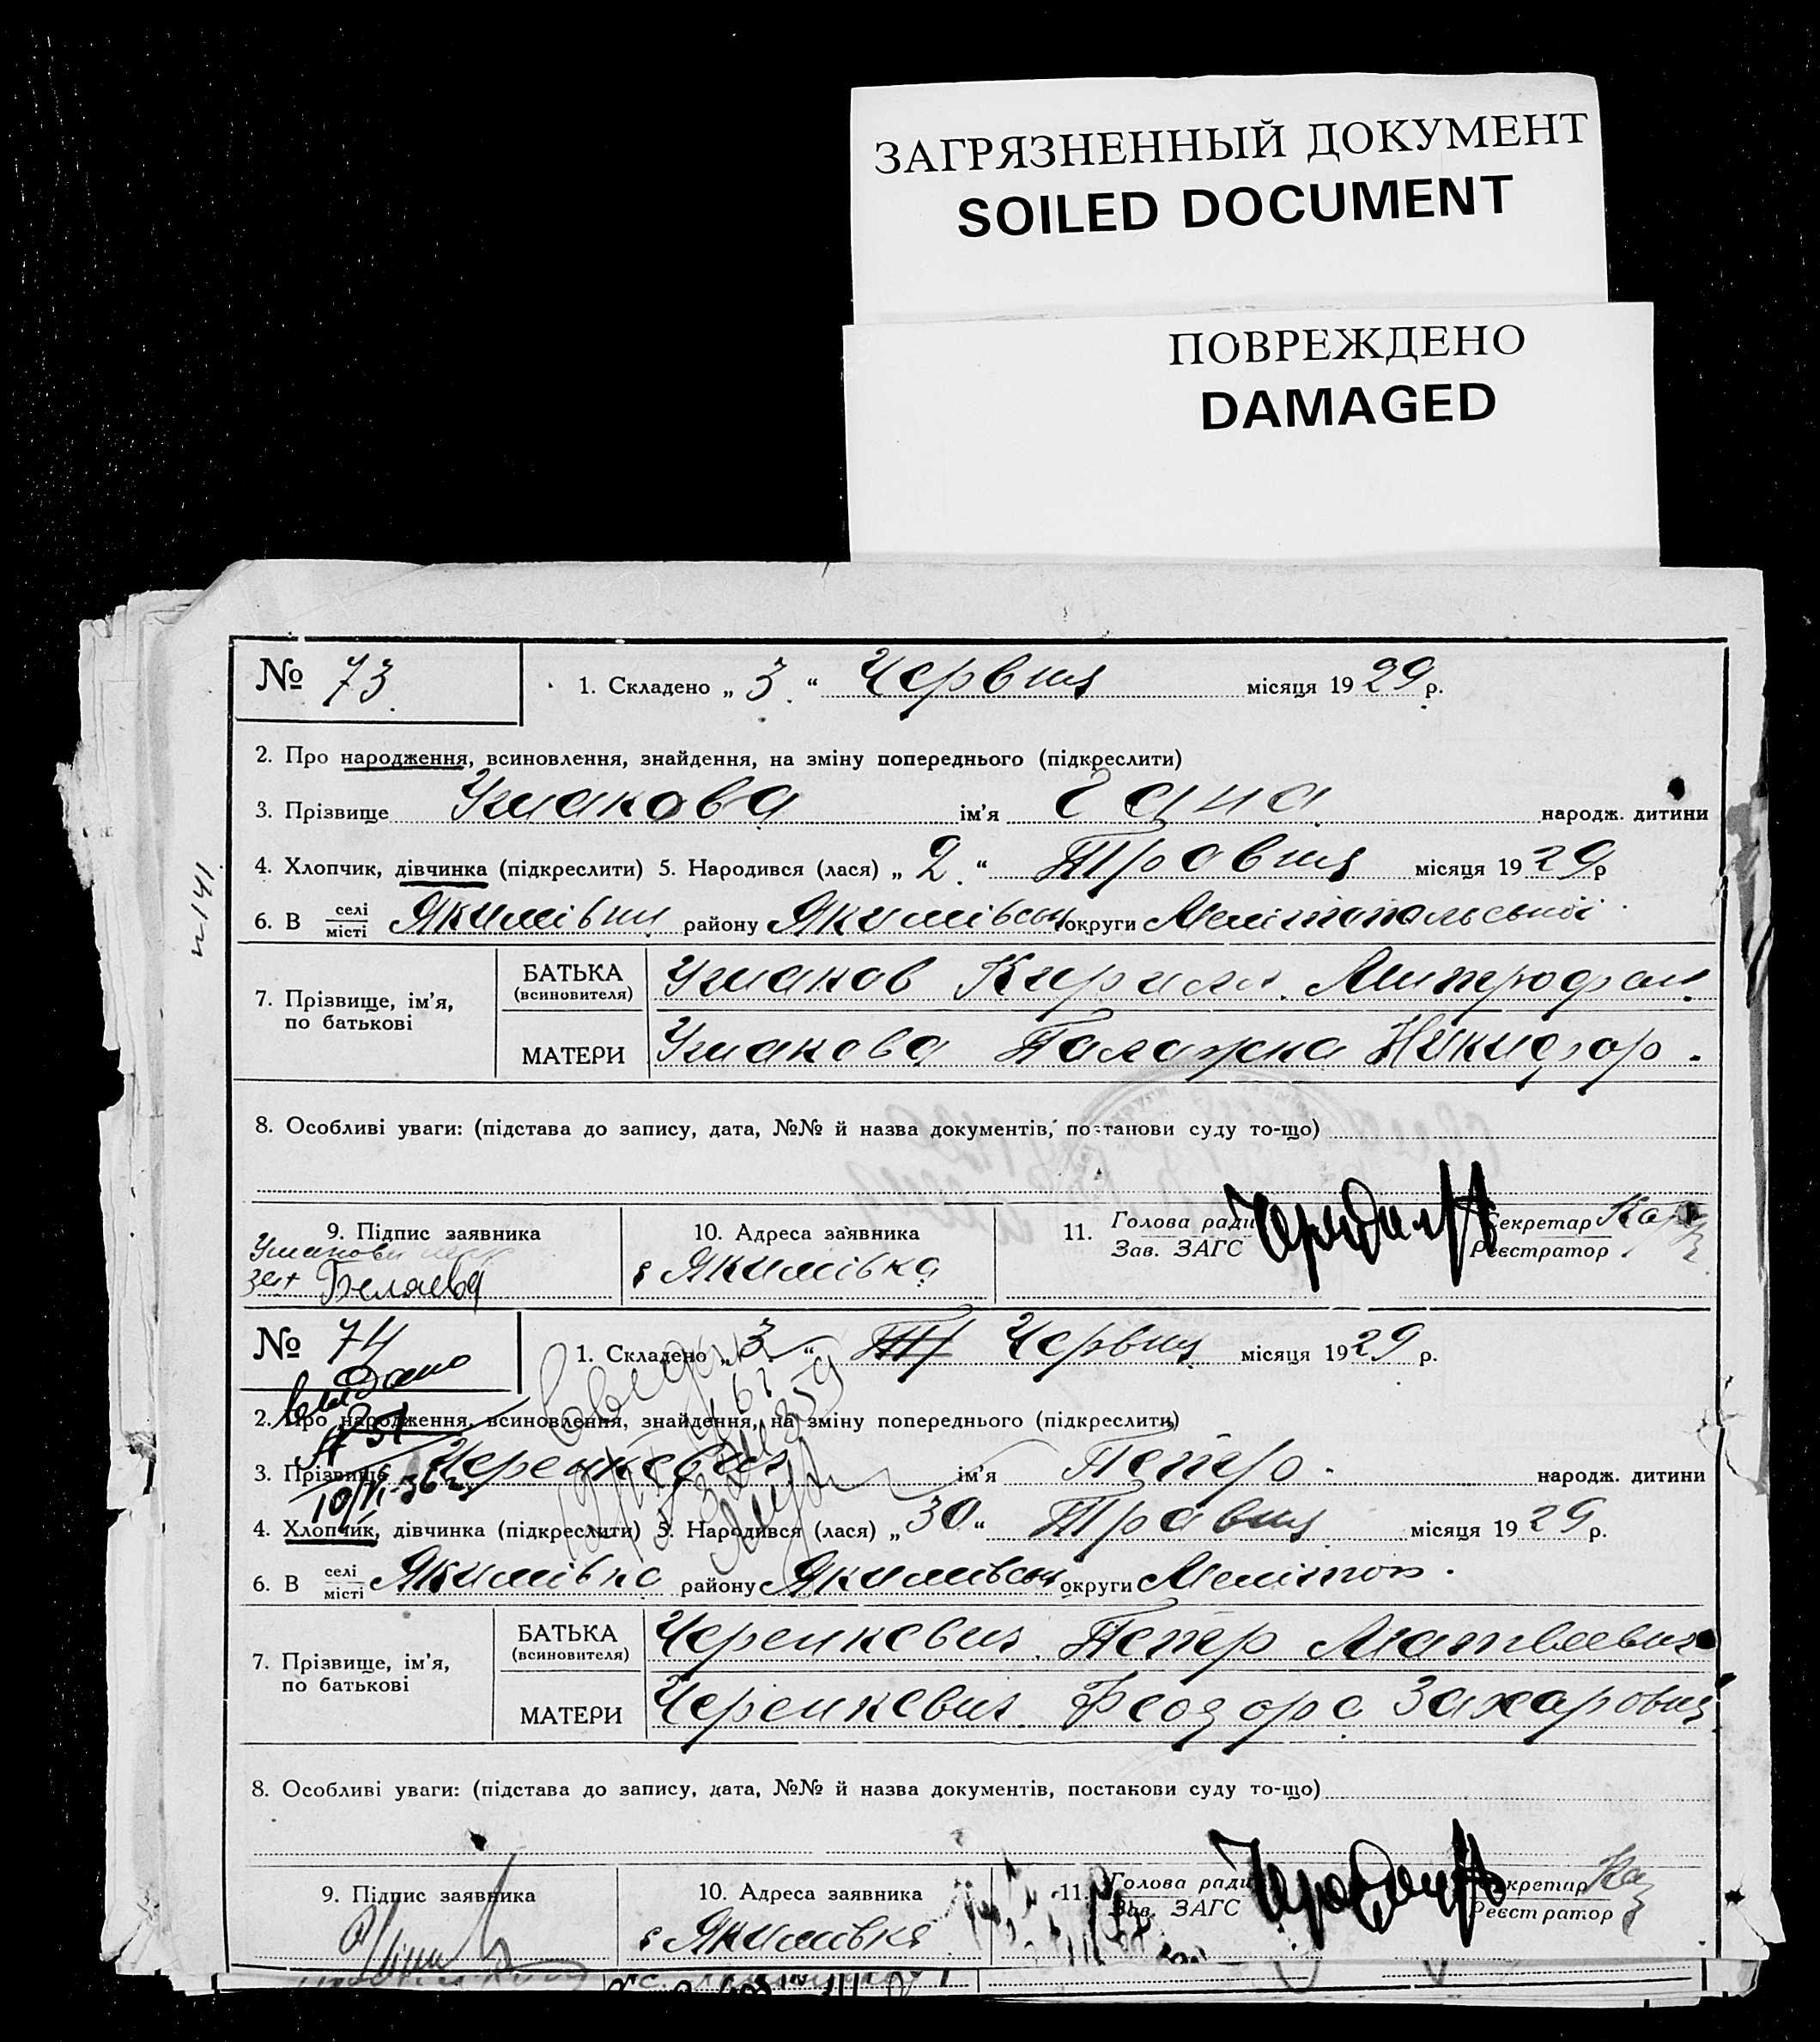 ЗАГРЯЗНЕННЫЙ ДОКУМЕНТ
SOILED DOCUMENT
ПОВРЕЖДЕНО
DAMAGED
№ 73. 1. Складено „3.“ Червня місяця 1929 р.
2. Про народження, всиновлення, знайдення, на зміну попереднього (підкреслити)
3. Прізвище Ушакова ім'я Гана народж. дитини
4. Хлопчик, дівчинка (підкреслити) 5. Народився (лася) „2.“ Травня місяця 1929 р
6. В селі місті Якимівка району Якимівськ округи Мелітопольської
141
7. Прізвище, ім'я, по батькові
БАТЬКА (всиновителя) Ушаков Кирило Митрофан.
МАТЕРИ Ушакова Палажка Никифор.
8. Особливі уваги: (підстава до запису, дата, №№ й назва документів, постанови суду то-що)
9. Підпис заявника 10. Адреса заявника 11. Голова ради Зав. ЗАГС Секретар Реєстратор
Ушакова
Беляева с Якимівка
№ 74 1. Складено „3“ Червня місяця 1929 р.
видано
2. Про народження, всиновлення, знайдення, на зміну попереднього (підкреслити)
3. Прізвище Черенкевич ім'я Петро. народж. дитини
10/VI-36 г.
4. Хлопчик, дівчинка (підкреслити) 5. Народився (лася) „30“ Травня місяця 1929 р.
6. В селі місті Якимівка району Якимівськ округи Мелітоп.
7. Прізвище, ім'я, по батькові
БАТЬКА (всиновителя) Черенкевич Петр Матвеевич
МАТЕРИ Черенкевич Феодора Захаровна
8. Особливі уваги: (підстава до запису, дата, №№ й назва документів, постанови суду то-що)
9. Підпис заявника 10. Адреса заявника 11. Голова ради Зав. ЗАГС Секретар Реєстратор
с Якимівка